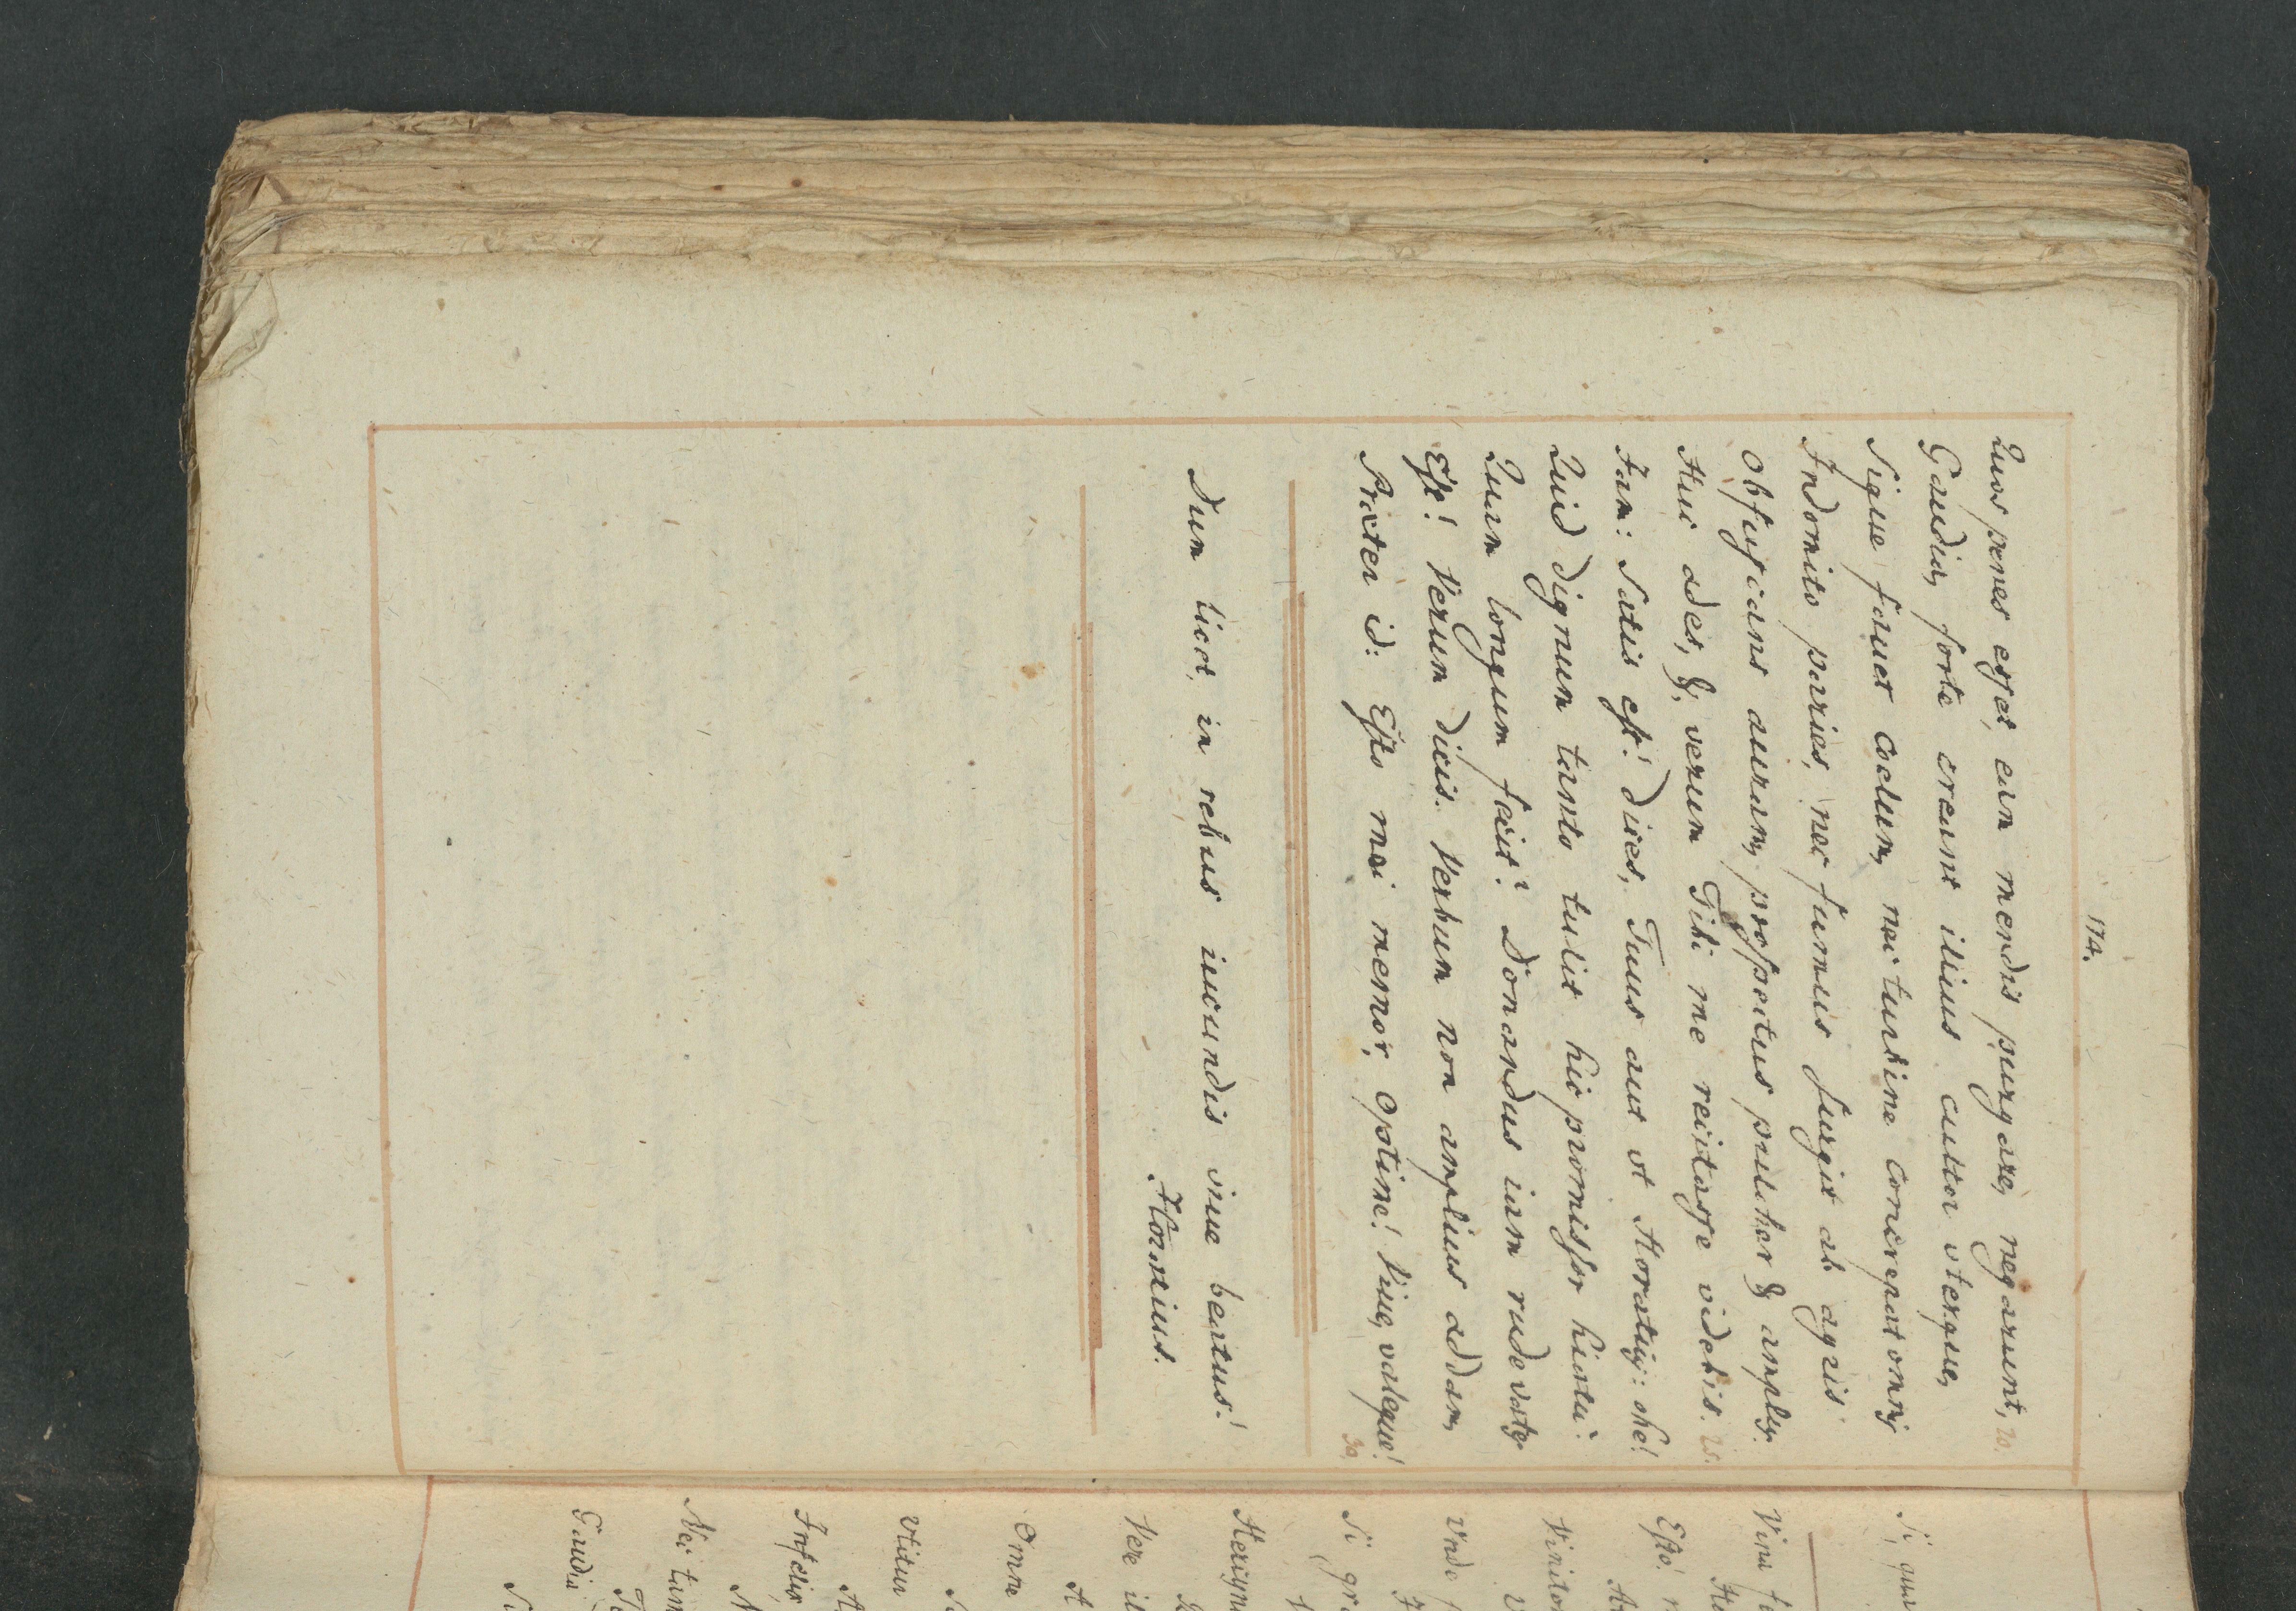 174.
Quos penes esset, eam mendis purgare, negarunt, 20.
Gaudia forte creant illius auctor vterque,
Sique fauet coelum, nec turbine concrepat omnis
Indomito paries, nec fumus surgit ab agris
Obfuscans auram, prospectus pulcher & amplus.
Huc ades, & verum Tibi me recitasse videbis. 25.
Iam: Satis est! dices, Tuus aut vt Horatius: ohe!
Quid dignum tanto tulit hic promissor hiatu?
Quam longum facit? Donandus iam rude vates
Esse! Verum dicis. Verbum non amplius addam,
Praeter id: Esto mei memor, optime! Viue, valeque! 30.
Dum licet, in rebus iucundis viue beatus!
Horatius.
Si, qua
Vina
Esto!
Vinitor
Vnde
Si gr
Vere il
Omne
Vtitur
Infelix
Nec tam
Gaudia